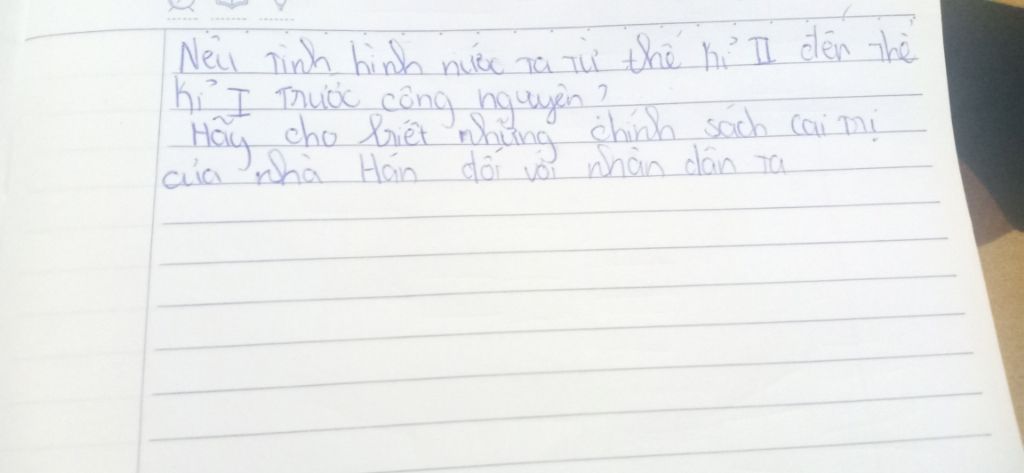 Nêu tình hình nước ta từ thế kỉ II đến thế
kỉ I trước công nguyên?
Hãy cho biết những chính sách cai trị
của nhà Hán đối với nhân dân ta